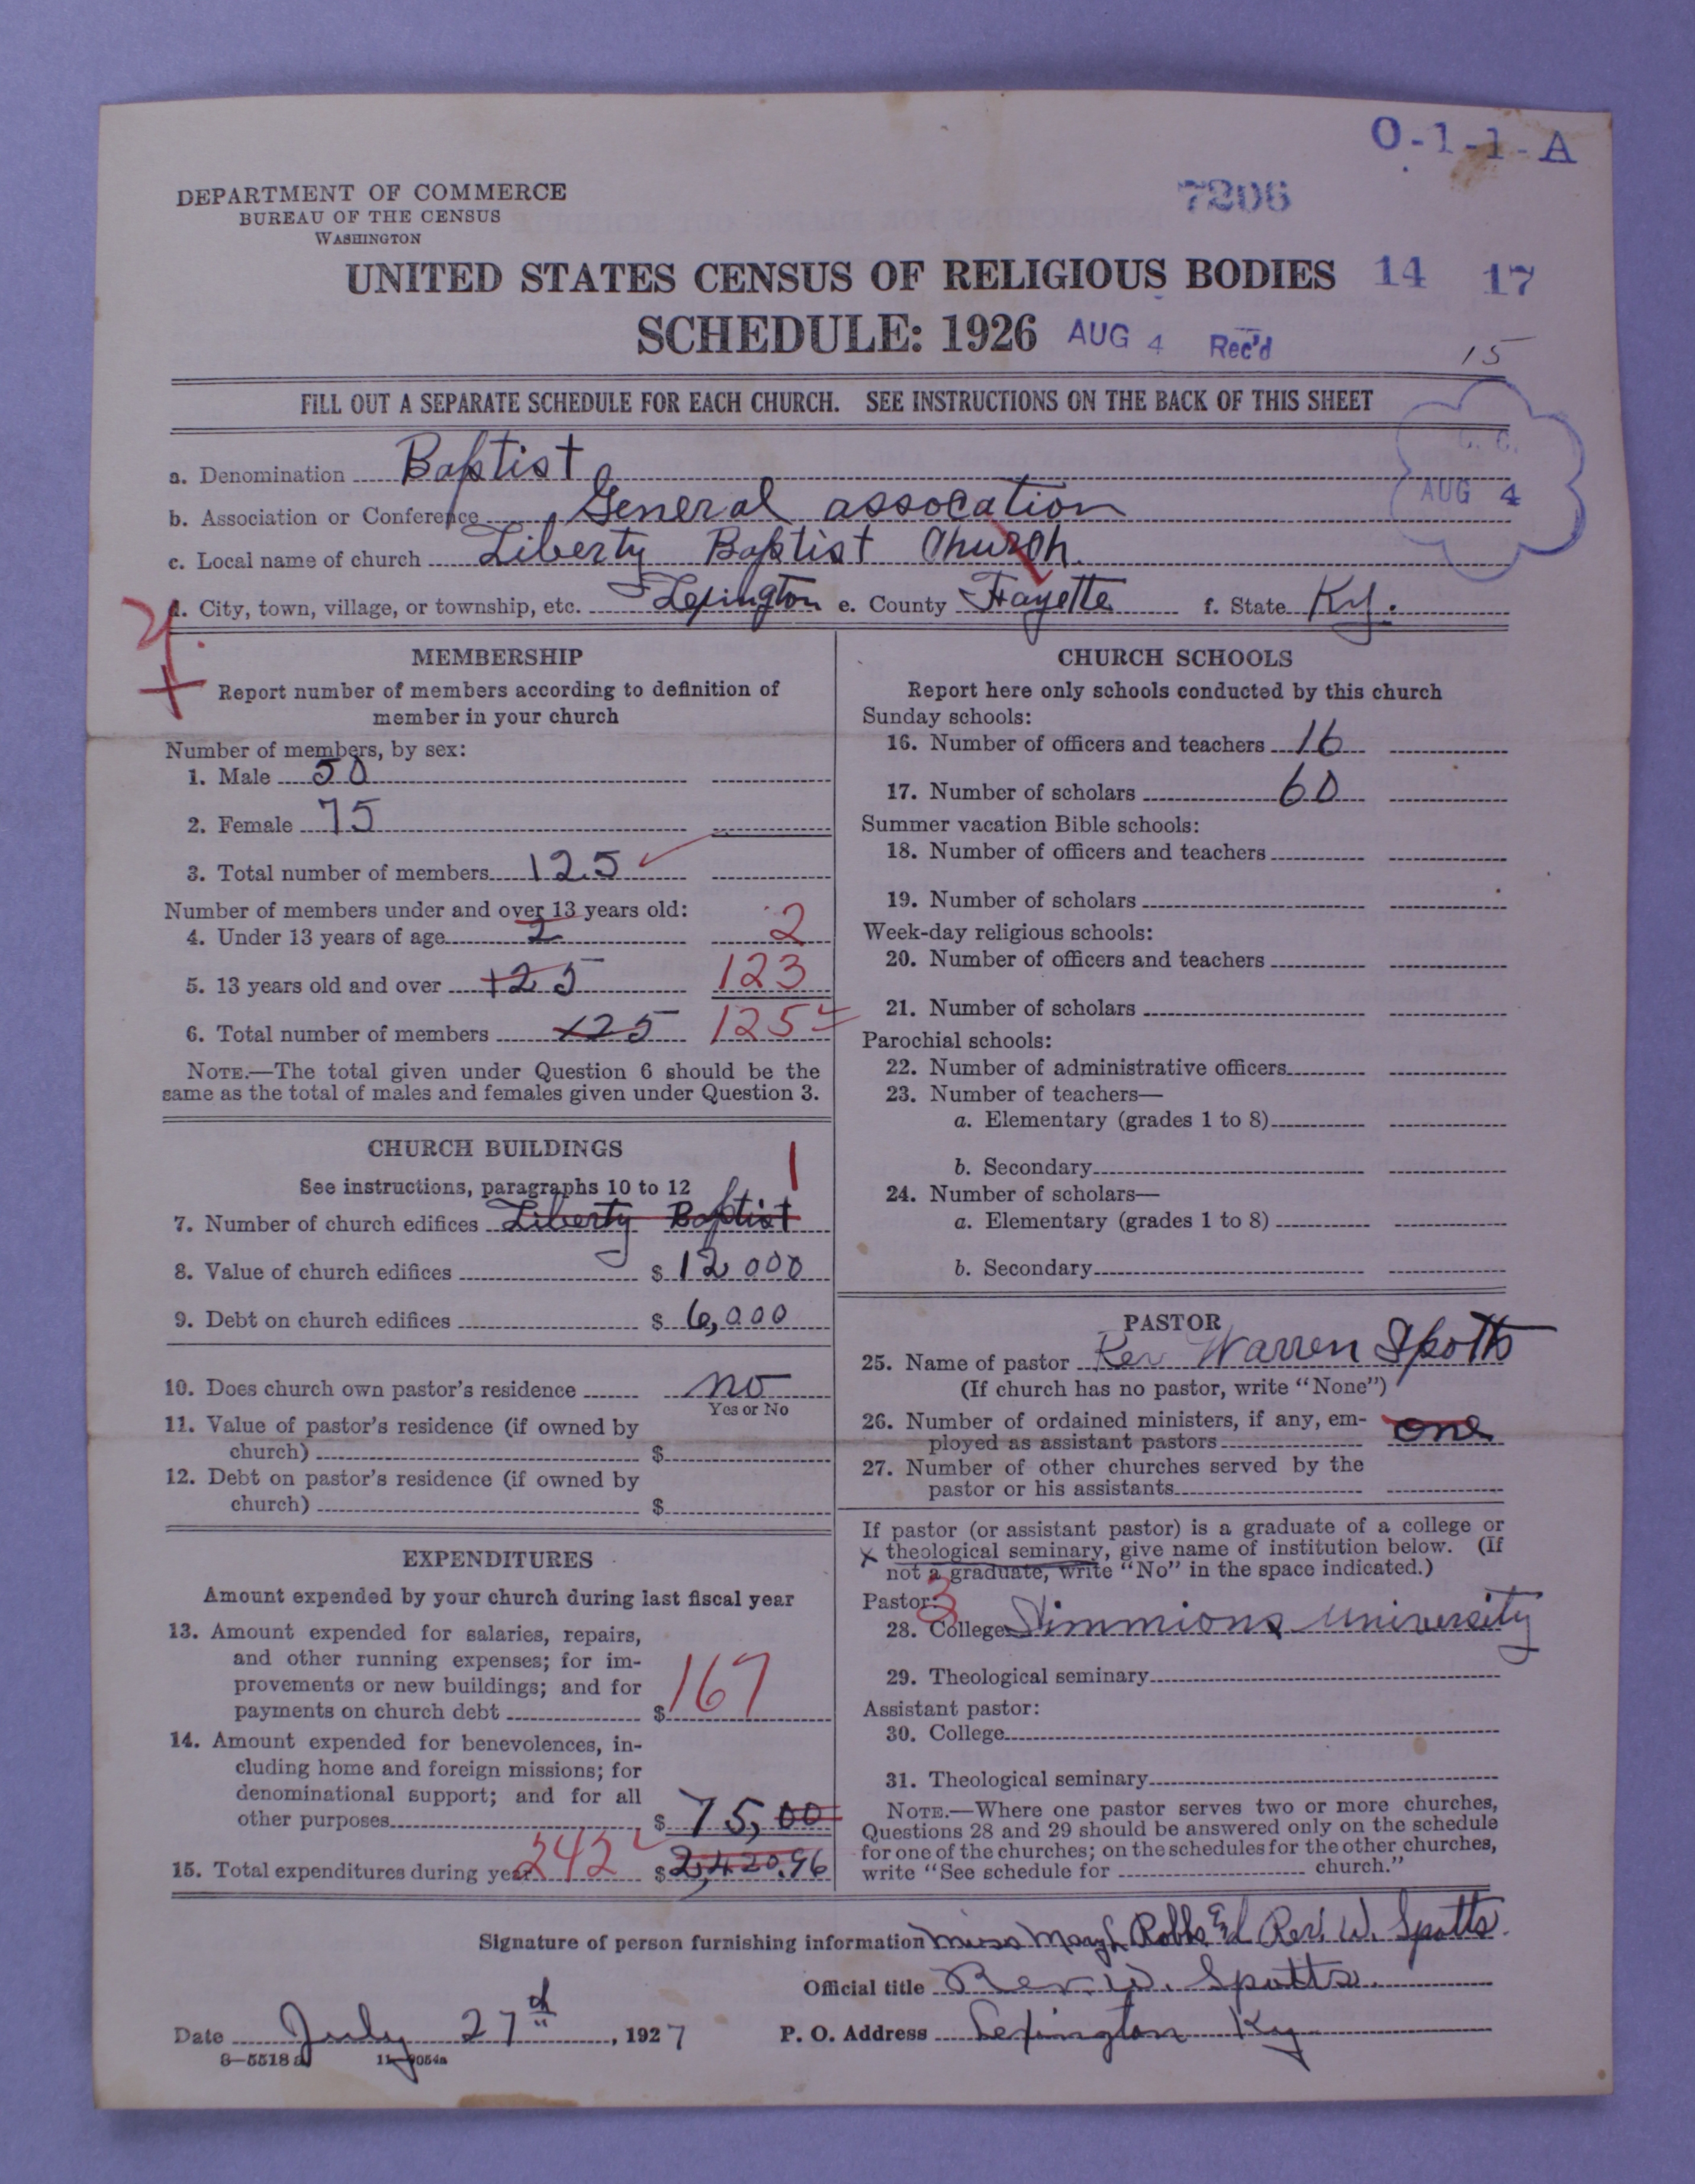 O-1-1-A
DEPARTMENT OF COMMERCE
BUREAU OF THE CENSUS
WASHINGTON
7206
UNITED STATES CENSUS OF RELIGIOUS BODIES 14 17
SCHEDULE: 1926 AUG 4 Rec'd
15
FILL OUT A SEPARATE SCHEDULE FOR EACH CHURCH. SEE INSTRUCTIONS ON THE BACK OF THIS SHEET
C. C.
AUG 4
a. Denomination Baptist
b. Association or Conference General assocation
c. Local name of church Liberty Baptist Church.
d. City, town, village, or township, etc. Lexington e. County Fayette f. State Ky.
MEMBERSHIP
Report number of members according to definition of
member in your church
Number of members, by sex:
1. Male 50
2. Female 75
3. Total number of members 125
Number of members under and over 13 years old:
4. Under 13 years of age 2 2
5. 13 years old and over 125 123
6. Total number of members 125 125
NOTE.—The total given under Question 6 should be the
same as the total of males and females given under Question 3.
CHURCH BUILDINGS
See instructions, paragraphs 10 to 12 1
7. Number of church edifices Liberty Baptist
8. Value of church edifices $ 12000
9. Debt on church edifices $ 6,000
10. Does church own pastor's residence no
Yes or No
11. Value of pastor's residence (if owned by
church) $
12. Debt on pastor's residence (if owned by
church) $
EXPENDITURES
Amount expended by your church during last fiscal year
13. Amount expended for salaries, repairs,
and other running expenses; for im-
provements or new buildings; and for
payments on church debt $ 167
14. Amount expended for benevolences, in-
cluding home and foreign missions; for
denominational support; and for all
other purposes $ 75,00
15. Total expenditures during year 242 $ 2,420.96
CHURCH SCHOOLS
Report here only schools conducted by this church
Sunday schools:
16. Number of officers and teachers 16
17. Number of scholars 60
Summer vacation Bible schools:
18. Number of officers and teachers
19. Number of scholars
Week-day religious schools:
20. Number of officers and teachers
21. Number of scholars
Parochial schools:
22. Number of administrative officers
23. Number of teachers—
a. Elementary (grades 1 to 8)
b. Secondary
24. Number of scholars—
a. Elementary (grades 1 to 8)
b. Secondary
PASTOR
25. Name of pastor Rev Warren Spotts
(If church has no pastor, write "None")
26. Number of ordained ministers, if any, em-
ployed as assistant pastors one
27. Number of other churches served by the
pastor or his assistants
If pastor (or assistant pastor) is a graduate of a college or
x theological seminary, give name of institution below. (If
not a graduate, write "No" in the space indicated.)
Pastor: 3
28. College Simmions university
29. Theological seminary
Assistant pastor:
30. College
31. Theological seminary
NOTE.—Where one pastor serves two or more churches,
Questions 28 and 29 should be answered only on the schedule
for one of the churches; on the schedules for the other churches,
write "See schedule for church."
Signature of person furnishing information Miss Robbs Rev. W. Spotts.
Official title Rev. W. Spotts.
Date July 27th, 1927 P. O. Address Lexington Ky
8—5518 a 11—9054a